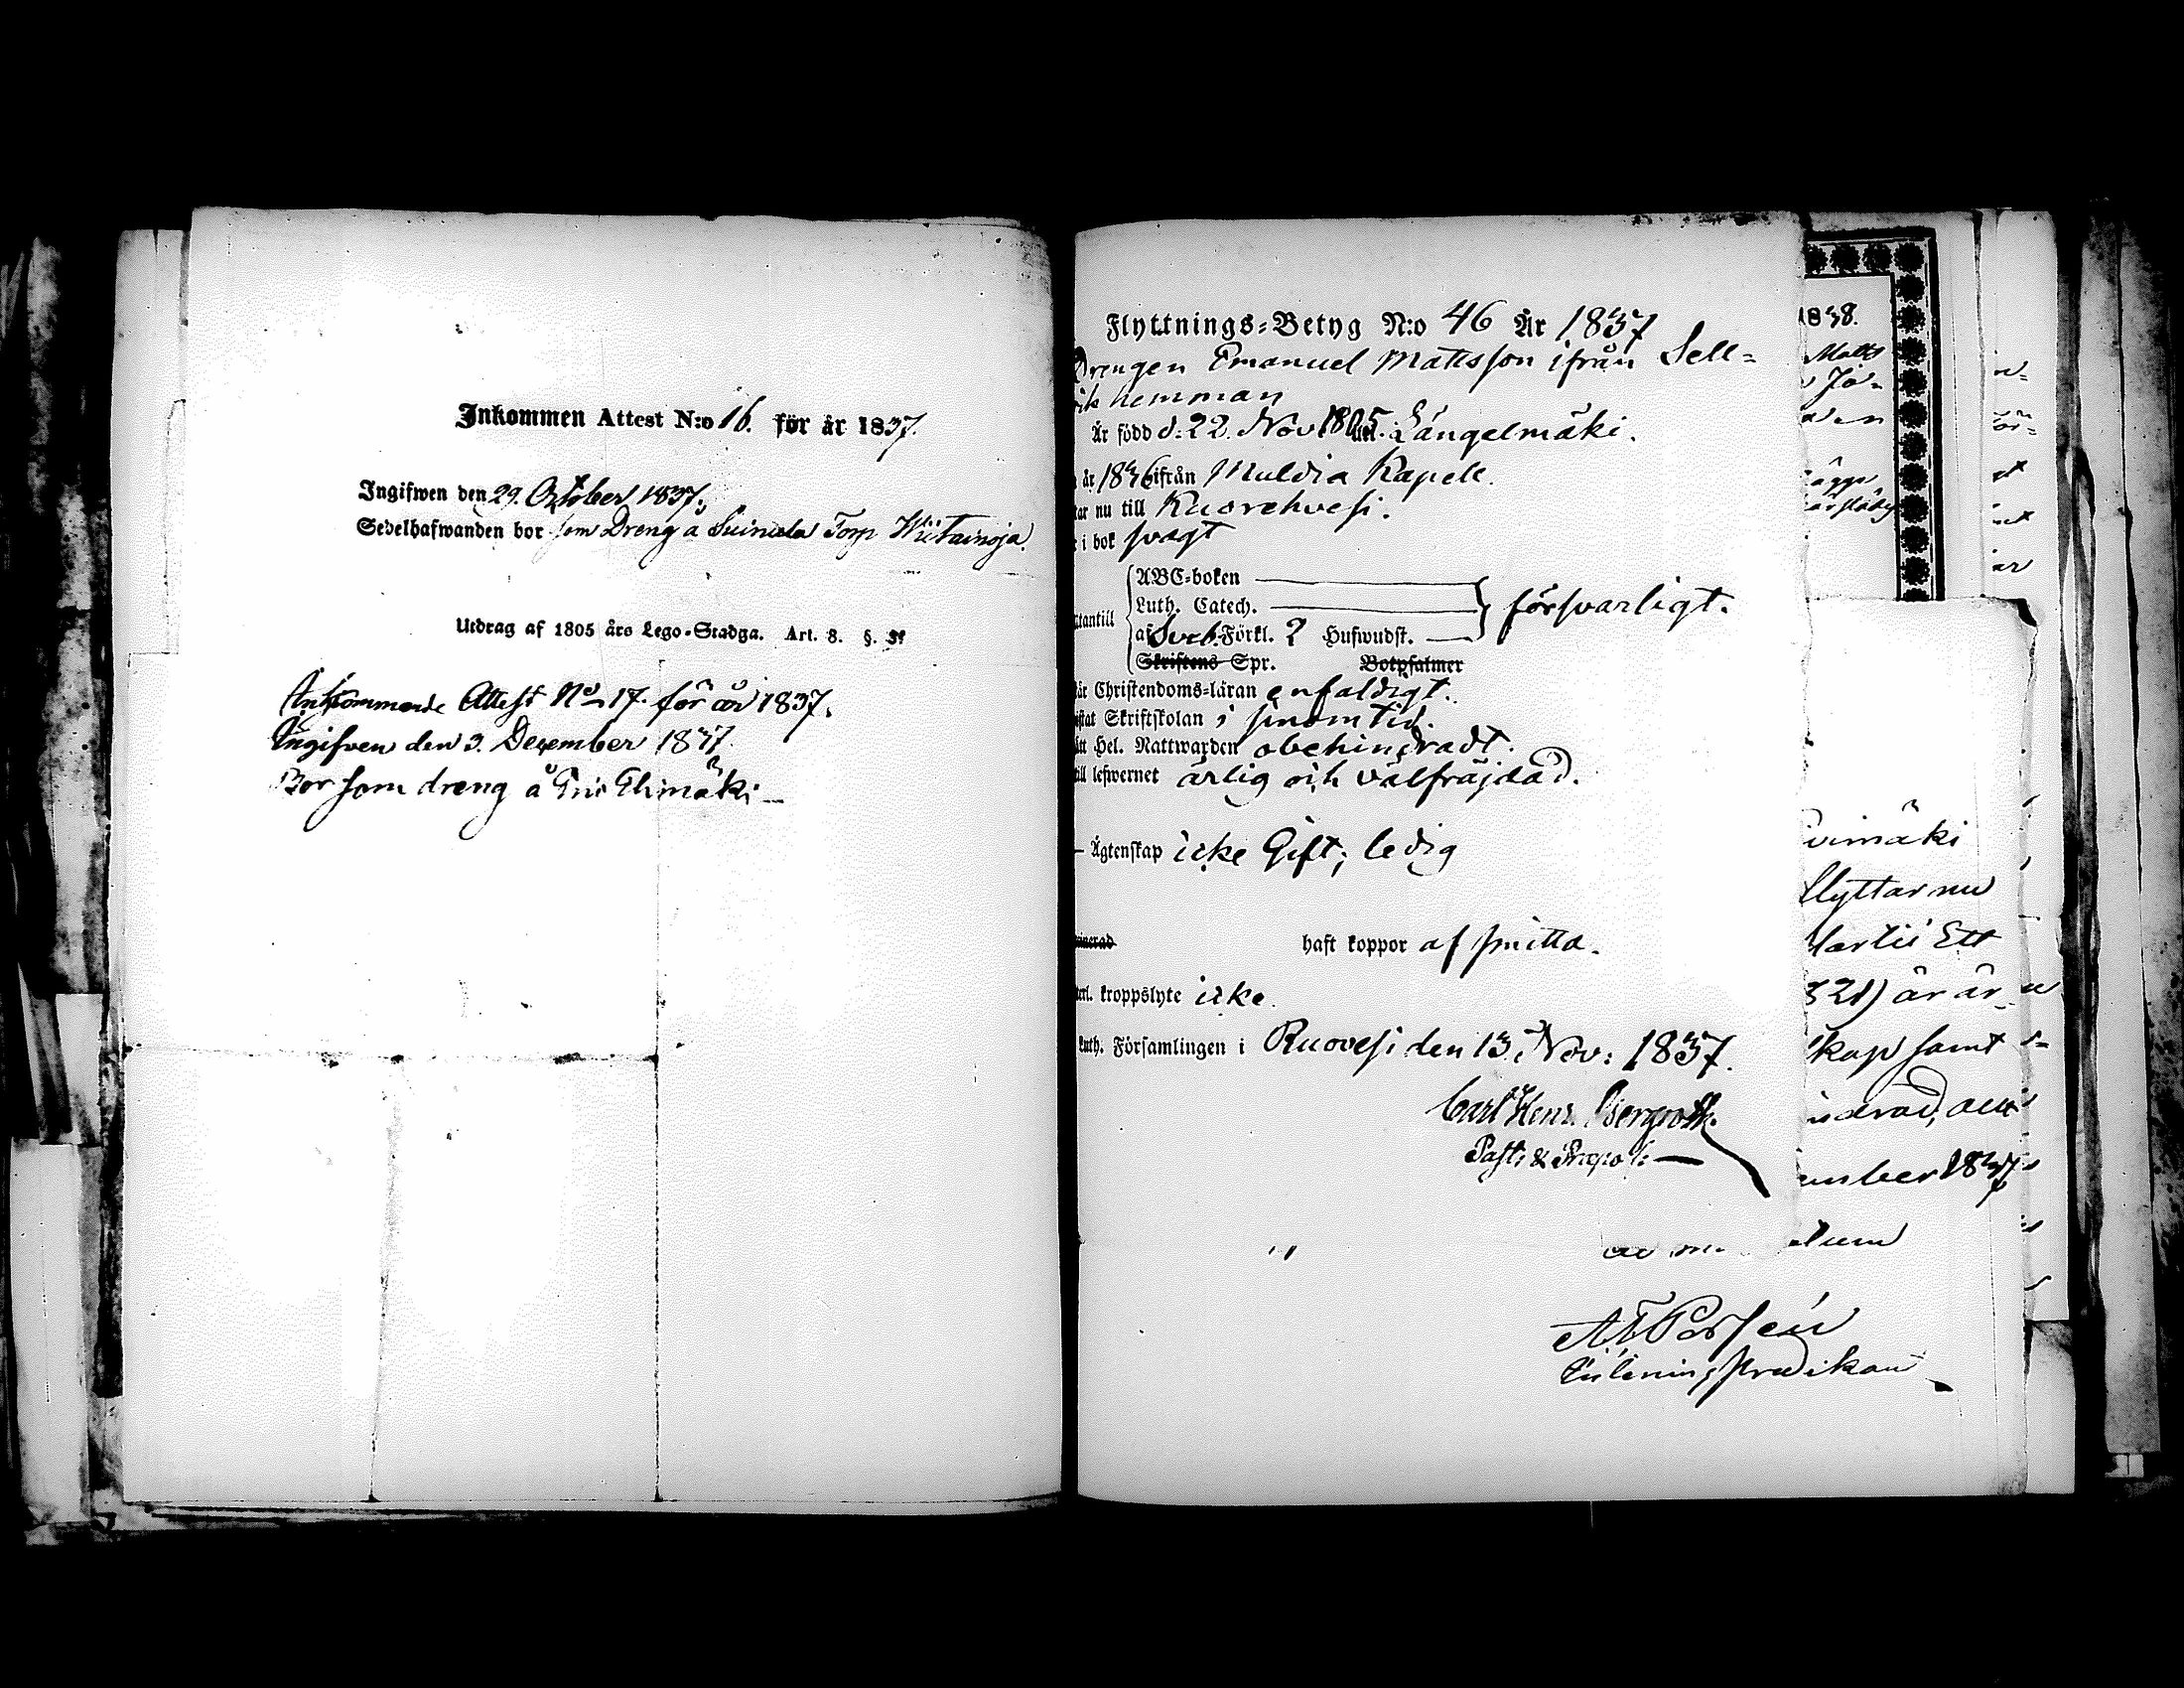 Inkommen Attest N:o 16. för år 1837.
Ingifwen den 29. October 1837.
Sedelhafwanden bor som Dreng å Suinula Torp Wiitainoja.
Utdrag af 1805 års Lego-Stadga. Art. 8. §.
Ankommande Attest No 17. för år 1837.
Ingifven den 3. December 1837.
Bor som dreng å
Flyttnings-Betyg N:o 46 År 1837
Drengen Emanuel Mattsson ifrån Sell=
hemman
Är född d. 22. Nov 1805. i Längelmäki.
år 1836 ifrån Muldia Kapell.
nu till Kuorehvesi.
i bok svagt
ABC-boken
Luth. Catech.
utantill försvarligt.
af Sveb. Förkl. 2 Hufwudst.
Skriftens Spr. Botpsalmer
Christendoms-läran enfaldigt.
Skriftskolan i sinom tid.
Hel. Nattwarden obehindradt.
till lefwernet ärlig och välfräjdad.
Ägtenskap icke Gift; ledig
haft koppor af smitta.
kroppslyte icke.
Luth. Församlingen i Ruovesi den 13. Nov: 1837.
Carl Henr. Bergroth.
Past: & Præpos:
1838.
Matts
flyttar nu
Ett
321) är är
skap samt
1837